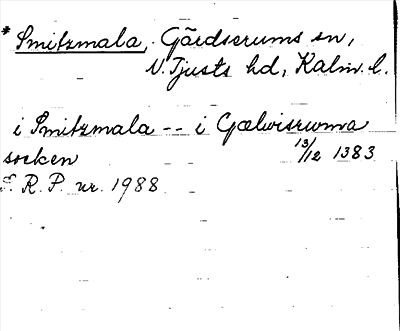 * Smitzmala, Gärdserums sn,
N. Tjusts hd, Kalm. l.
i Smitzmala -- i Gælwiszrwma
socken 13/12 1383
S. R. P. nr. 1988